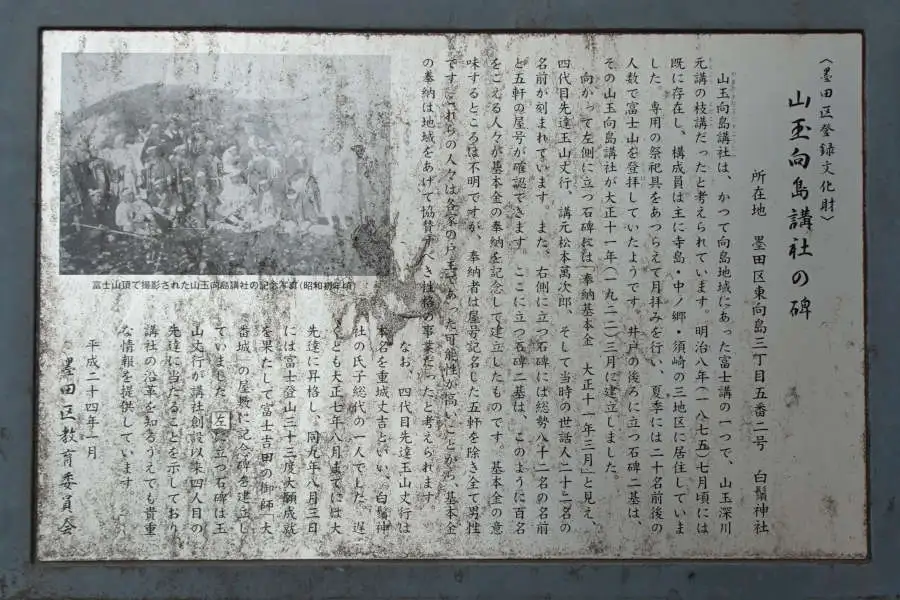 〈墨田区登録文化財〉
山玉向島講社の碑
所在地　墨田区東向島三丁目五番二号　白鬚神社
山玉向島講社は、かつて向島地域にあった富士講の一つで、山玉深川
元講の枝講だったと考えられています。明治八年（一八七五）七月頃には
既に存在し、構成員は主に寺島・中ノ郷・須崎の三地区に居住していま
した。専用の祭祀具をあつらえて月拝みを行い、夏季には二十名前後の
人数で富士山を登拝していたようです。井戸の後ろに立つ石碑二基は、
その山玉向島講社が大正十一年（一九二二）三月に建立しました。
向かって左側に立つ石碑には「奉納基本金　大正十一年三月」と見え、
四代目先達玉山丈行、講元松本萬次郎、そして当時の世話人二十二名の
名前が刻まれています。また、右側に立つ石碑には総勢八十二名の名前
と五軒の屋号が確認できます。ここに立つ石碑二基は、このように百名
をこえる人々が基本金の奉納を記念して建立したものです。基本金の意
味するところは不明ですが、奉納者は屋号記名した五軒を除き全て男性
です。これらの人々は各家の戸主であった可能性が高いことから、基本金
の奉納は地域をあげて協賛すべき性格の事業だったと考えられます。
なお、四代目先達玉山丈行は
本名を重城丈吉といい、白鬚神
社の氏子総代の一人でした。遅
くとも大正七年八月までには大
先達に昇格し、同九年八月三日
には富士登山三十三度大願成就
を果たして富士吉田の御師「大
番城」の屋敷に記念碑を建立し
ていました。左に立つ石碑は玉
山丈行が講社創設以来四人目の
先達に当たることを示しており、
講社の沿革を知るうえでも貴重
な情報を提供しています。
平成二十四年一月
墨田区教育委員会
富士山頂で撮影された山玉向島講社の記念写真（昭和初年頃）